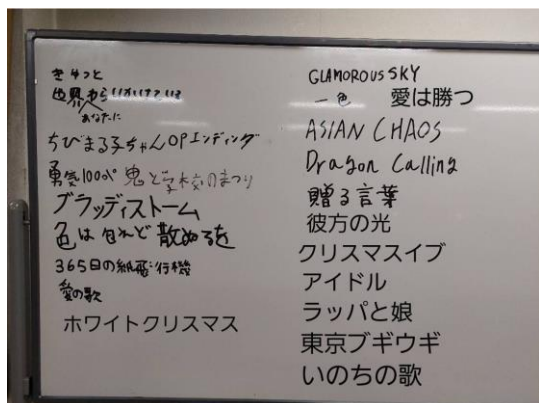 きっと
世界から
あなたに
ちびまる子ちゃんOPエンディング
勇気100% 鬼と学校のまつり
ブラッディストーム
色は匂へど 散りぬるを
365日の紙飛行機
愛の歌
ホワイトクリスマス
GLAMOROUS SKY
一色 愛は勝つ
ASIAN CHAOS
Dragon Calling
贈る言葉
彼方の光
クリスマスイブ
アイドル
ラッパと娘
東京ブギウギ
いのちの歌